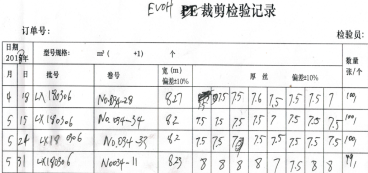 EVOH PE 裁剪检验记录
订单号： 检验员：
日期 2018 型号规格： m² ( +1) 个 数量 张/个
月 日 批号 卷号 宽 (m) 偏差±10% 厚 丝 偏差±10%
4 18 LX180306 No.034-28 8.27 7.5 7.5 7.6 7.5 7.5 7.5 7 100
5 15 LX180306 No.034-34 8.2 7.5 7.5 7.5 7.5 7 7.5 7.5 7.5 100
5 24 LX180306 No.034-33 8.2 7.5 7.5 7.5 7.5 7.5 7.5 7.5 100
5 31 LX180306 No034-11 8.23 8 8 8 8 7 7.5 8 8